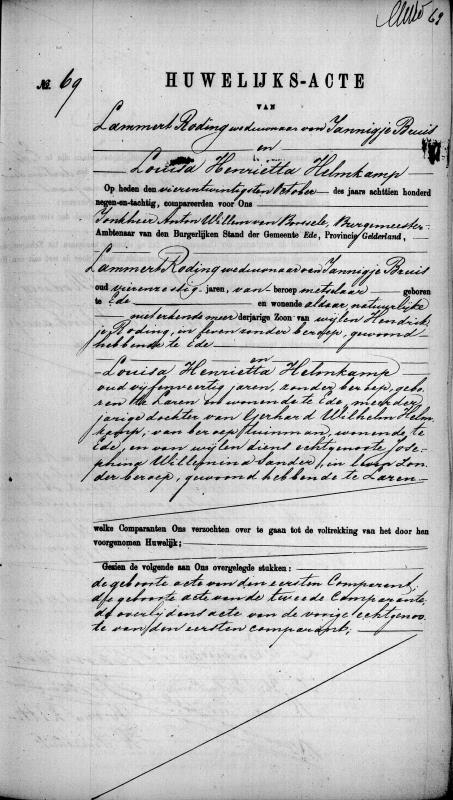 69
No. 69 HUWELIJKS-ACTE
VAN
Lammert Roding weduwnaar van Jannigje Bruis
en
Louisa Henrietta Helmkamp
Op heden den vierentwintigsten October des jaars achttien honderd
negen-en-tachtig, compareerden voor Ons
Jonkheer Anton Willem van Borssele, Burgemeester
Ambtenaar van den Burgerlijken Stand der Gemeente Ede, Provincie Gelderland,
Lammert Roding weduwnaar van Jannigje Bruis
oud vierenzestig jaren, van beroep metselaar geboren
te Ede en wonende aldaar natuurlijke
meerderjarige Zoon van wijlen Hendrik
je Roding, in leven zonder beroep, gewoond
hebbende te Ede
en
Louisa Henrietta Helmkamp
oud vijfenveertig jaren, zonder beroep, gebo
ren te Laren en wonende te Ede, meerder
jarige dochter van Gerhard Wilhelm Helm
kamp, van beroep tuinman, wonende te
Ede, en van wijlen diens echtgenoote Jose
phina Willemina Sander, in leven zon
der beroep, gewoond hebbende te Laren
welke Comparanten Ons verzochten over te gaan tot de voltrekking van het door hen
voorgenomen Huwelijk;
Gezien de volgende aan Ons overgelegde stukken:
de geboorte acte van den eersten Comparant,
de geboorte acte van de tweede Comparante,
de overlijdens acte van de vorige echtgenoo
te van den eersten comparant,